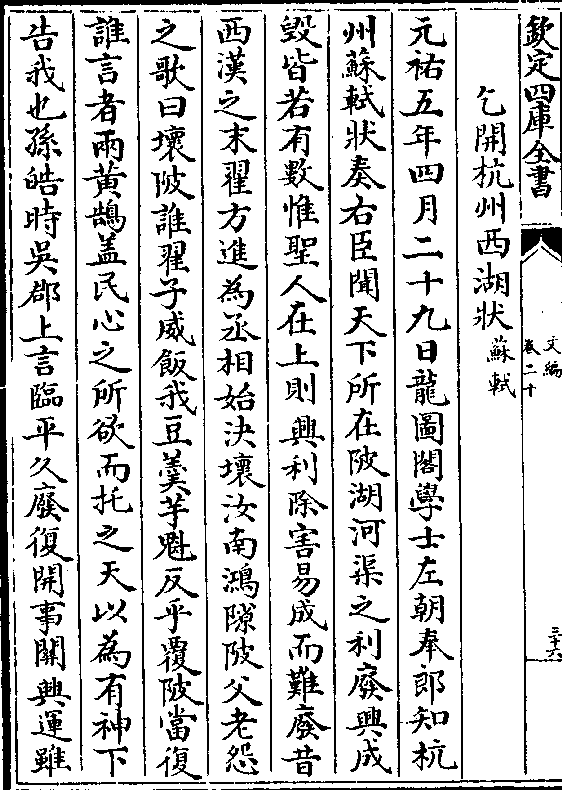 欽定四庫全書
文編
卷二十
三十六
乞開杭州西湖狀 蘇軾
元祐五年四月二十九日龍圖閣學士左朝奉郎知杭
州蘇軾狀奏右臣聞天下所在陂湖河渠之利廢興成
毀皆若有數惟聖人在上則興利除害易成而難廢昔
西漢之末翟方進為丞相始決壞汝南鴻隙陂父老怨
之歌曰壞陂誰翟子威飯我豆羹芋魁反乎覆陂當復
誰言者兩黃鵠盖民心之所欲而托之天以為有神下
告我也孫皓時吳郡上言臨平久廢復開事關興運雖